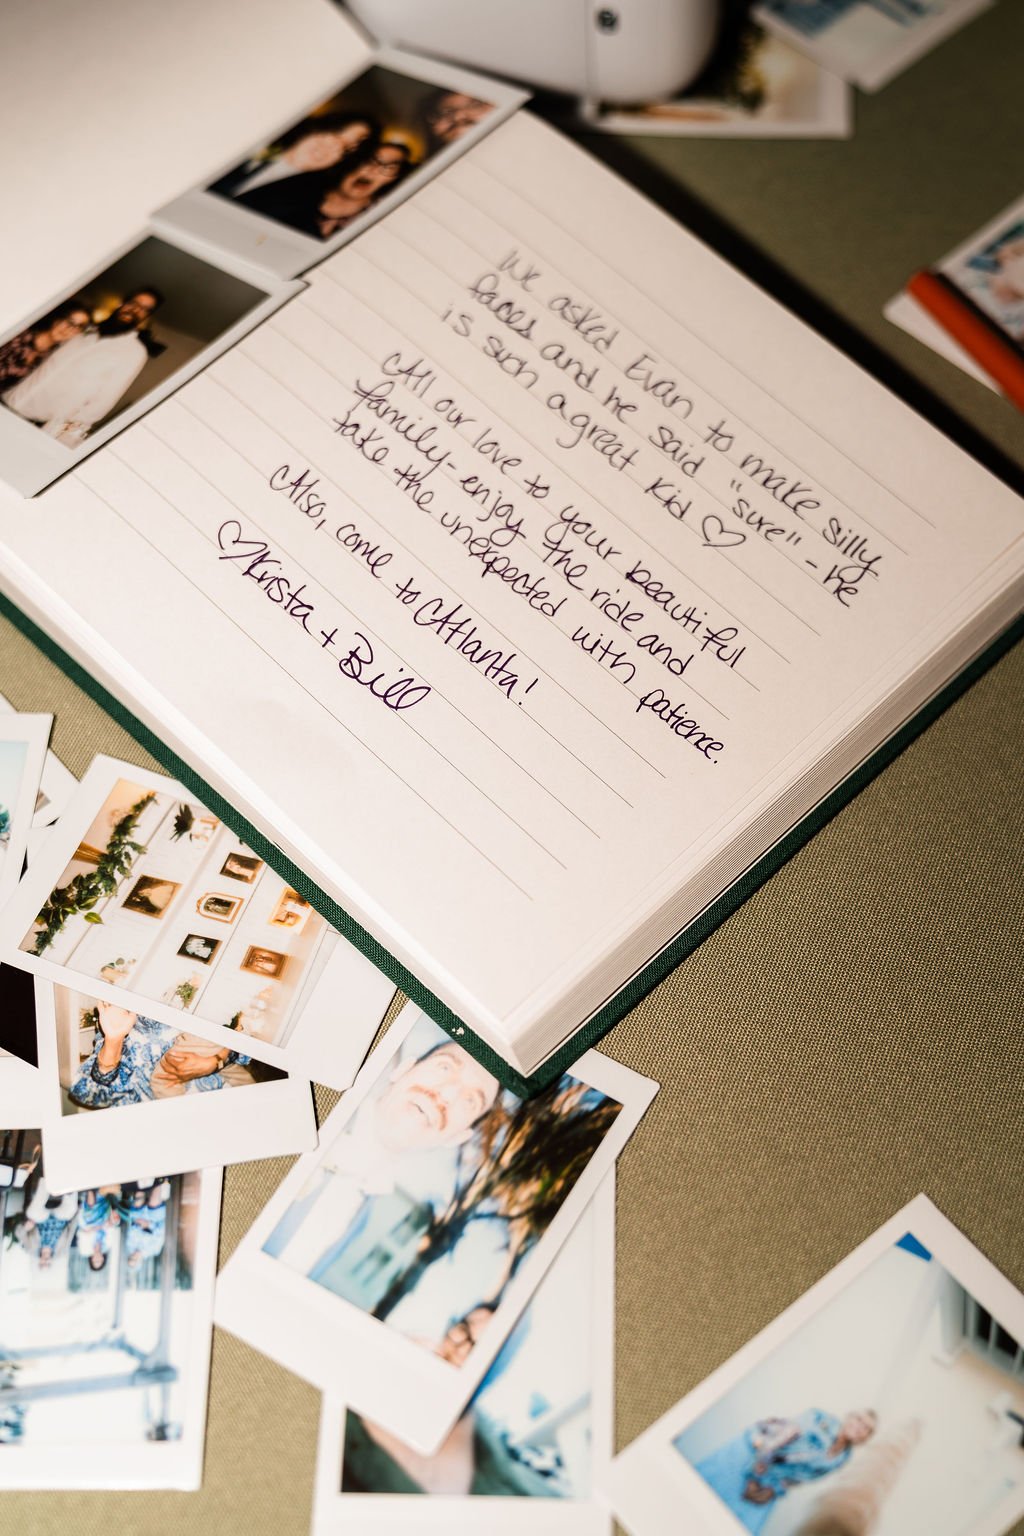 We asked Evan to make silly
faces and he said "sure" - he
is such a great kid ♡
All our love to your beautiful
family - enjoy the ride and
take the unexpected with patience.
Also, come to Atlanta!
♡ Krista + Bill